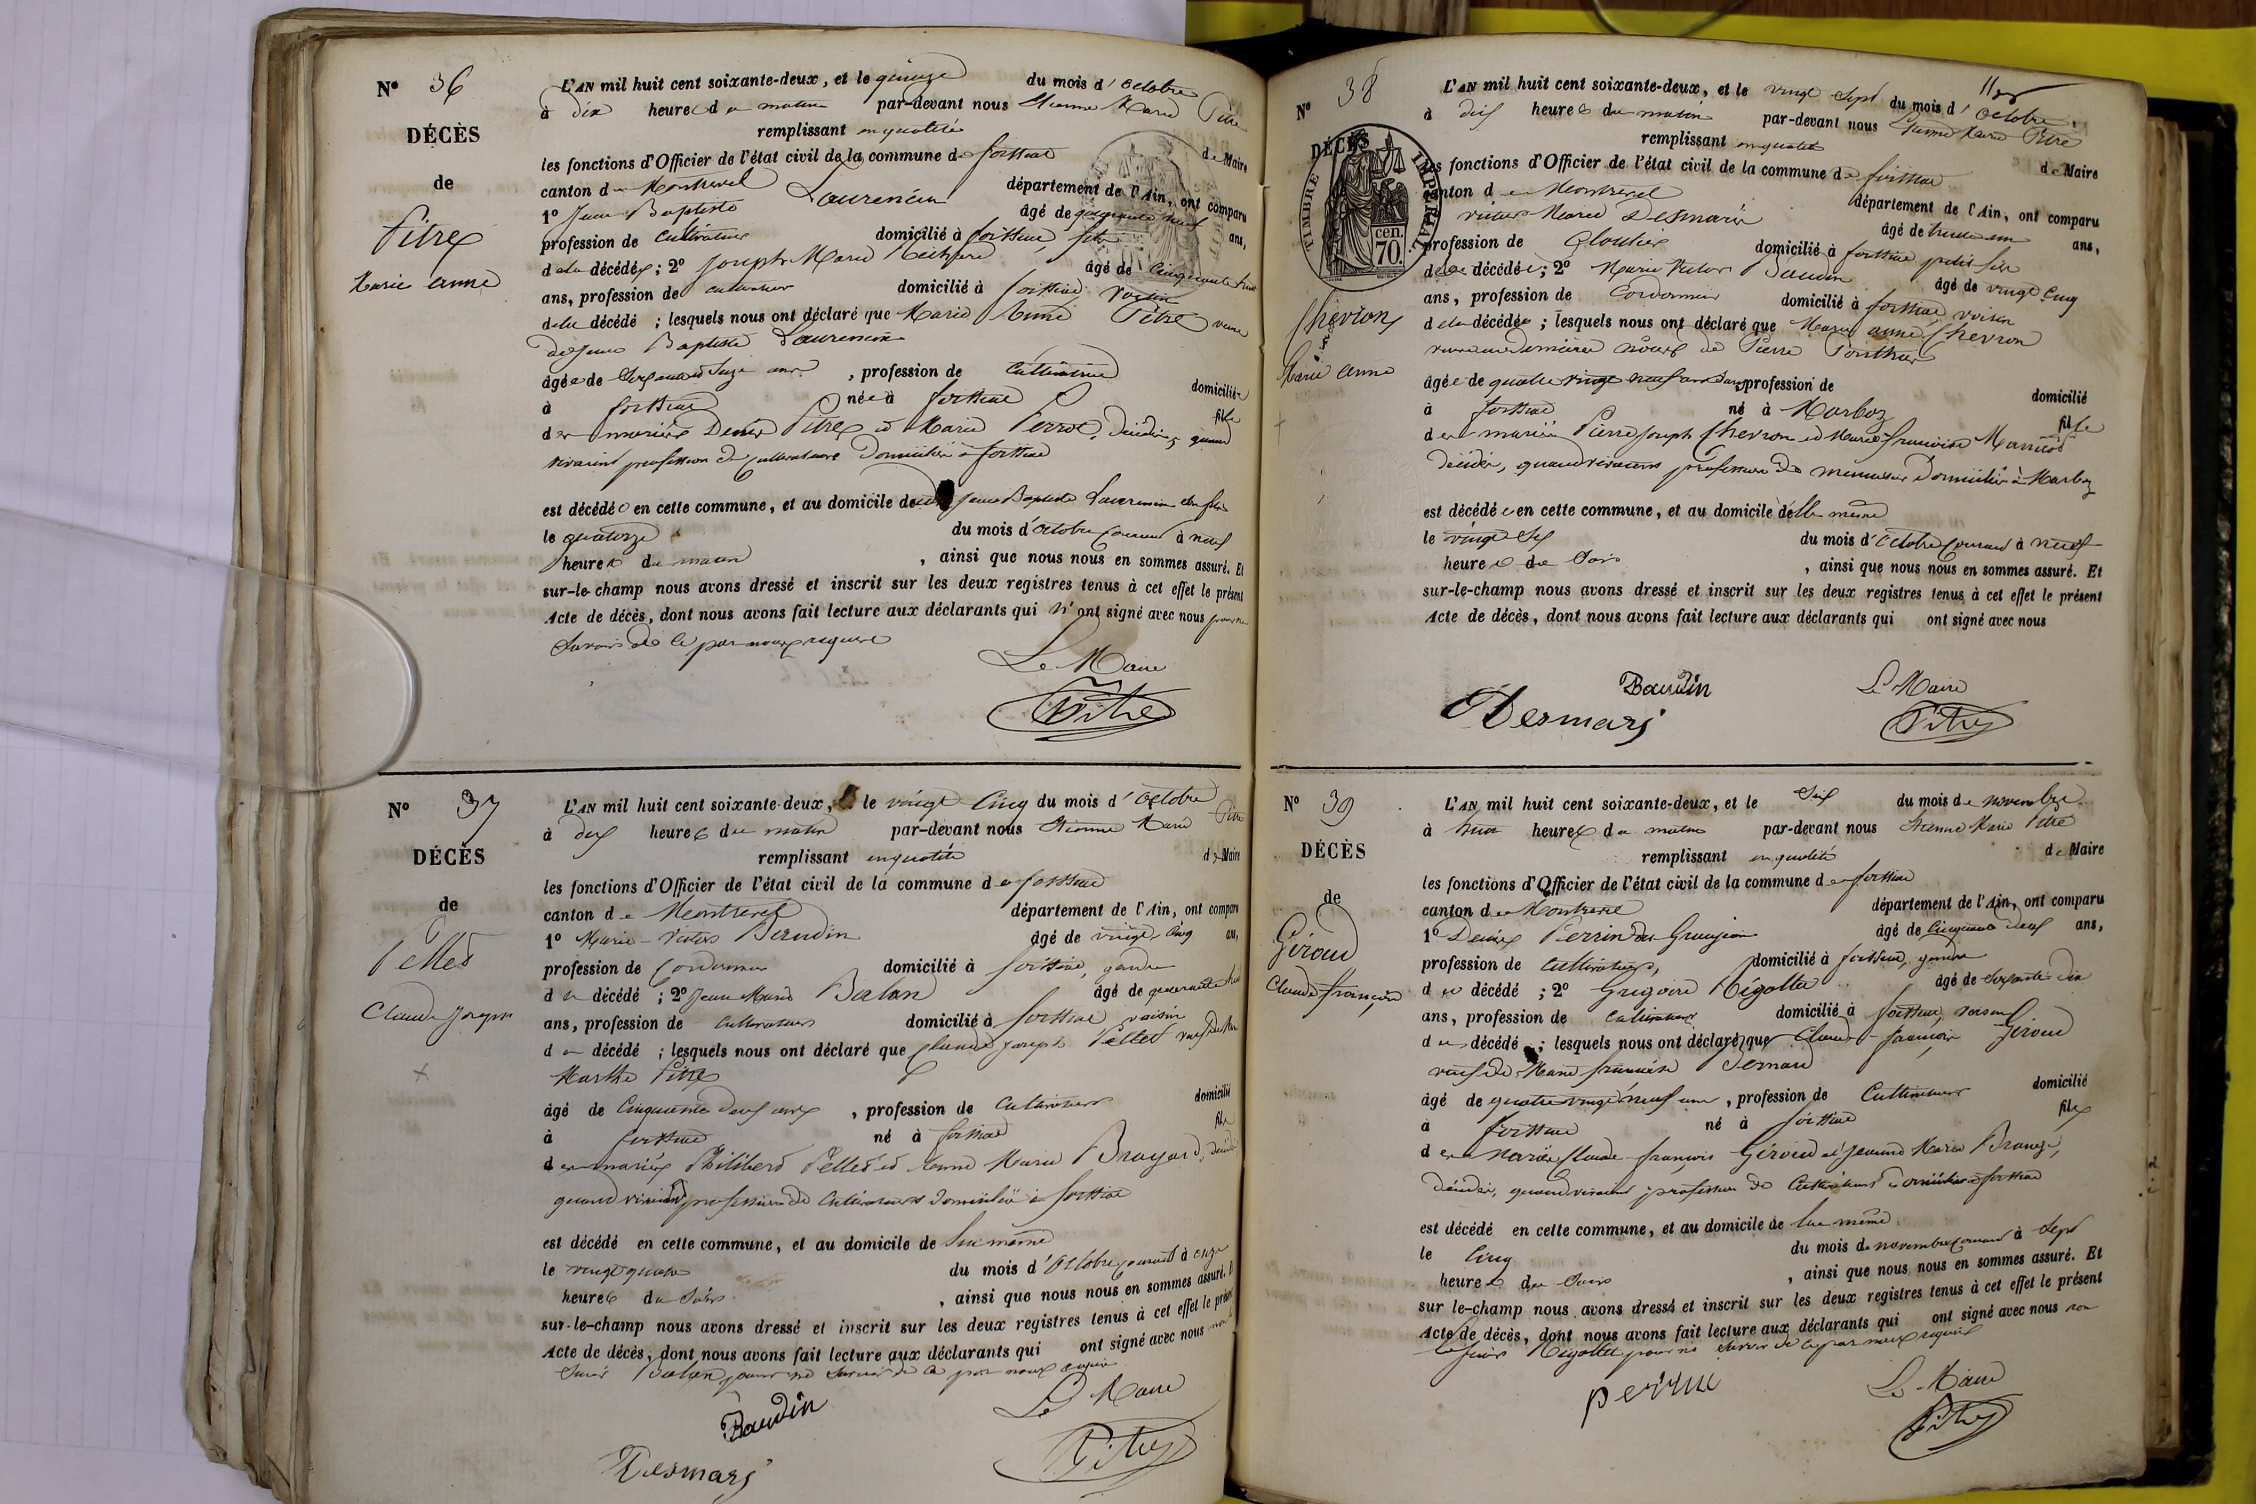 N° 36
DÉCÈS
de
Pitre
Marie Anne
L'AN mil huit cent soixante-deux, et le quinze du mois d'octobre
à dix heures du matin par-devant nous Etienne Marie Pitre
remplissant en qualité de Maire
les fonctions d'Officier de l'état civil de la commune de foissiat
canton de Montrevel département de l'Ain, ont comparu
1° Jean Baptiste Laurencin âgé de quarante neuf ans,
profession de cultivateur domicilié à foissiat fils
de la décédée; 2° Joseph Marie âgé de cinquante
ans, profession de cultivateur domicilié à foissiat voisin
de la décédé; lesquels nous ont déclaré que Marie Anne Pitre veuve
de Jean Baptiste Laurencin
âgée de soixante et seize ans, profession de cultivatrice domiciliée
à foissiat née à foissiat fille
des mariés Denis Pitre et Marie Perrot, décédés, quand
vivaient profession de cultivateurs domiciliés à foissiat
est décédée en cette commune, et au domicile de Jean Baptiste Laurencin son fils
le quatorze du mois d'octobre courant à neuf
heures du matin, ainsi que nous nous en sommes assuré. Et
sur-le-champ nous avons dressé et inscrit sur les deux registres tenus à cet effet le présent
Acte de décès, dont nous avons fait lecture aux déclarants qui n'ont signé avec nous pour ne
savoir de ce par nous requis
Le Maire
Pitre
N° 37
DÉCÈS
de
Pellet
Claude Joseph
+
L'AN mil huit cent soixante-deux, le vingt cinq du mois d'octobre
à dix heures du matin par-devant nous Etienne Marie Pitre
remplissant en qualité de Maire
les fonctions d'Officier de l'état civil de la commune de foissiat
canton de Montrevel département de l'Ain, ont comparu
1° Marie Victor Baudin âgé de vingt cinq ans,
profession de cordonnier domicilié à foissiat, gendre
du décédé; 2° Jean Marie Balan âgé de quarante huit
ans, profession de cultivateur domicilié à foissiat voisin
du décédé; lesquels nous ont déclaré que Claude Joseph Pellet veuf de
Marthe Pitre
âgé de cinquante deux ans, profession de cultivateur domicilié
à foissiat né à foissiat fils
des mariés Philibert Pellet et Anne Marie Broyard, décédés
quand vivaient profession de cultivateurs domiciliés à foissiat
est décédé en cette commune, et au domicile de lui même
le vingt quatre du mois d'octobre courant à onze
heures du soir, ainsi que nous nous en sommes assuré. Et
sur-le-champ nous avons dressé et inscrit sur les deux registres tenus à cet effet le présent
Acte de décès, dont nous avons fait lecture aux déclarants qui ont signé avec nous non
Balan pour ne savoir de ce par nous requis
Baudin
Desmaris
Le Maire
Pitre
N° 38
DÉCÈS
TIMBRE IMPÉRIAL
70 cen.
Chevron
Marie Anne
+
L'AN mil huit cent soixante-deux, et le vingt sept du mois d'octobre
à dix heures du matin par-devant nous Etienne Marie Pitre
remplissant en qualité de Maire
les fonctions d'Officier de l'état civil de la commune de foissiat
canton de Montrevel département de l'Ain, ont comparu
Victor Marie Desmaris âgé de trente un ans,
profession de cloutier domicilié à foissiat petit fils
de la décédée; 2° Marie Victor Baudin âgé de vingt cinq
ans, profession de cordonnier domicilié à foissiat, voisin
de la décédée; lesquels nous ont déclaré que Marie Anne Chevron
veuve en dernières nôces de Pierre Ponthus
âgée de quatre vingt neuf ans profession de domicilié
à foissiat né à Marboz fille
des mariés Pierre Joseph Chevron et Marie françoise
décédés, quand vivaient profession de menuisier domiciliés à Marboz
est décédée en cette commune, et au domicile d'elle même
le vingt six du mois d'octobre courant à neuf
heures du soir, ainsi que nous nous en sommes assuré. Et
sur-le-champ nous avons dressé et inscrit sur les deux registres tenus à cet effet le présent
Acte de décès, dont nous avons fait lecture aux déclarants qui ont signé avec nous
Baudin
Desmaris
Le Maire
Pitre
N° 39
DÉCÈS
de
Giroud
Claude françois
L'AN mil huit cent soixante-deux, et le six du mois de novembre
à huit heures du matin par-devant nous Etienne Marie Pitre
remplissant en qualité de Maire
les fonctions d'Officier de l'état civil de la commune de foissiat
canton de Montrevel département de l'Ain, ont comparu
1° Denis Perrin âgé de cinquante deux ans,
profession de cultivateur, domicilié à foissiat, gendre
du décédé; 2° Grégoire Rigollet âgé de soixante dix
ans, profession de cultivateur domicilié à foissiat, voisin
du décédé; lesquels nous ont déclaré que Claude françois Giroud
veuf de Marie françoise Bernard
âgé de quatre vingt neuf ans, profession de cultivateur domicilié
à foissiat né à foissiat fils
des mariés Claude françois Giroud et Jeanne Marie
décédés, quand vivaient profession de cultivateurs domiciliés à foissiat
est décédé en cette commune, et au domicile de lui même
le cinq du mois de novembre courant à sept
heures du soir, ainsi que nous nous en sommes assuré. Et
sur le-champ nous avons dressé et inscrit sur les deux registres tenus à cet effet le présent
Acte de décès, dont nous avons fait lecture aux déclarants qui ont signé avec nous non
Rigollet pour ne savoir de ce par nous requis
perrin
Le Maire
Pitre